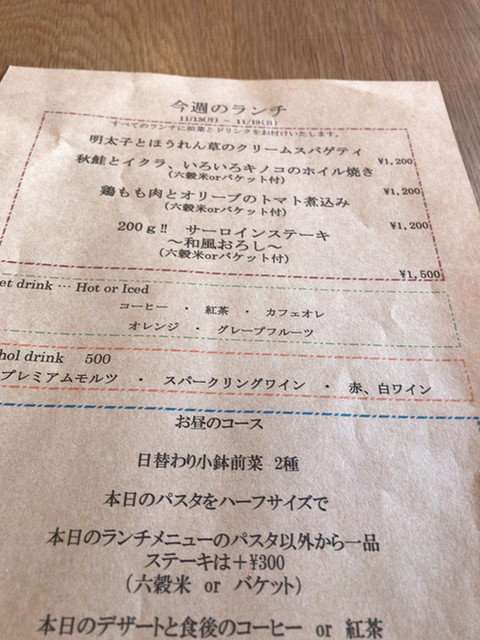 今週のランチ
11/13(月) ～ 11/19(日)
すべてのランチに前菜とドリンクをお付けいたします。
明太子とほうれん草のクリームスパゲティ
¥1,200
秋鮭とイクラ、いろいろキノコのホイル焼き
(六穀米orバケット付)
¥1,200
鶏もも肉とオリーブのトマト煮込み
(六穀米orバケット付)
¥1,200
200g!! サーロインステーキ
～和風おろし～
(六穀米orバケット付)
¥1,500
et drink … Hot or Iced
コーヒー ・ 紅茶 ・ カフェオレ
オレンジ ・ グレープフルーツ
hol drink 500
プレミアムモルツ ・ スパークリングワイン ・ 赤、白ワイン
お昼のコース
日替わり小鉢前菜 2種
本日のパスタをハーフサイズで
本日のランチメニューのパスタ以外から一品
ステーキは＋¥300
(六穀米 or バケット)
本日のデザートと食後のコーヒー or 紅茶